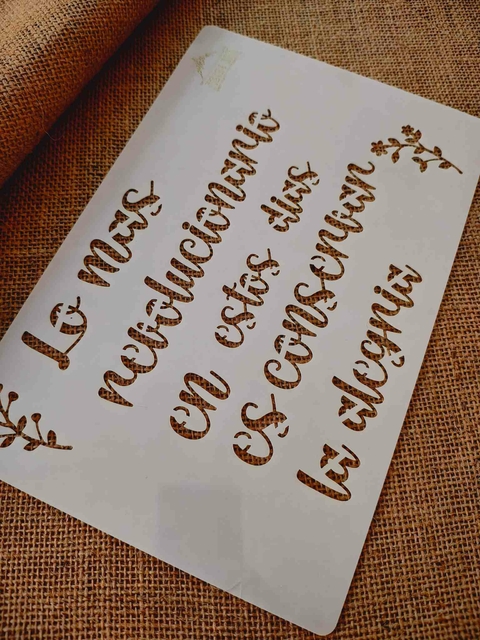 Lo mas
revolucionario
en estos dias
es conservar
la alegria